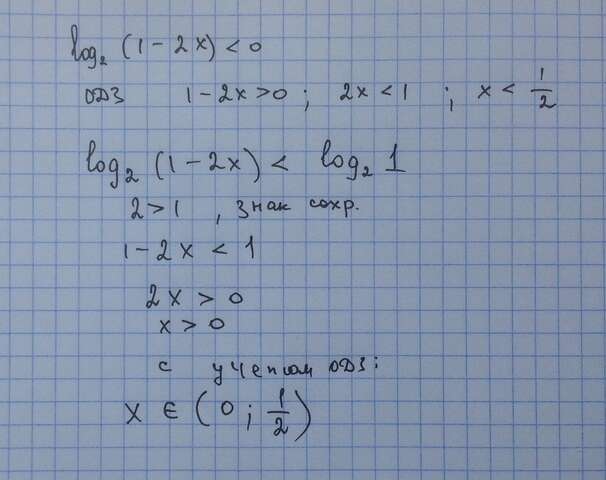 log₂ (1 - 2x) < 0
ОДЗ 1 - 2x > 0 ; 2x < 1 ; x < 1/2
log₂ (1 - 2x) < log₂ 1
2 > 1 , знак сохр.
1 - 2x < 1
2x > 0
x > 0
с учетом ОДЗ:
x ∈ (0 ; 1/2)